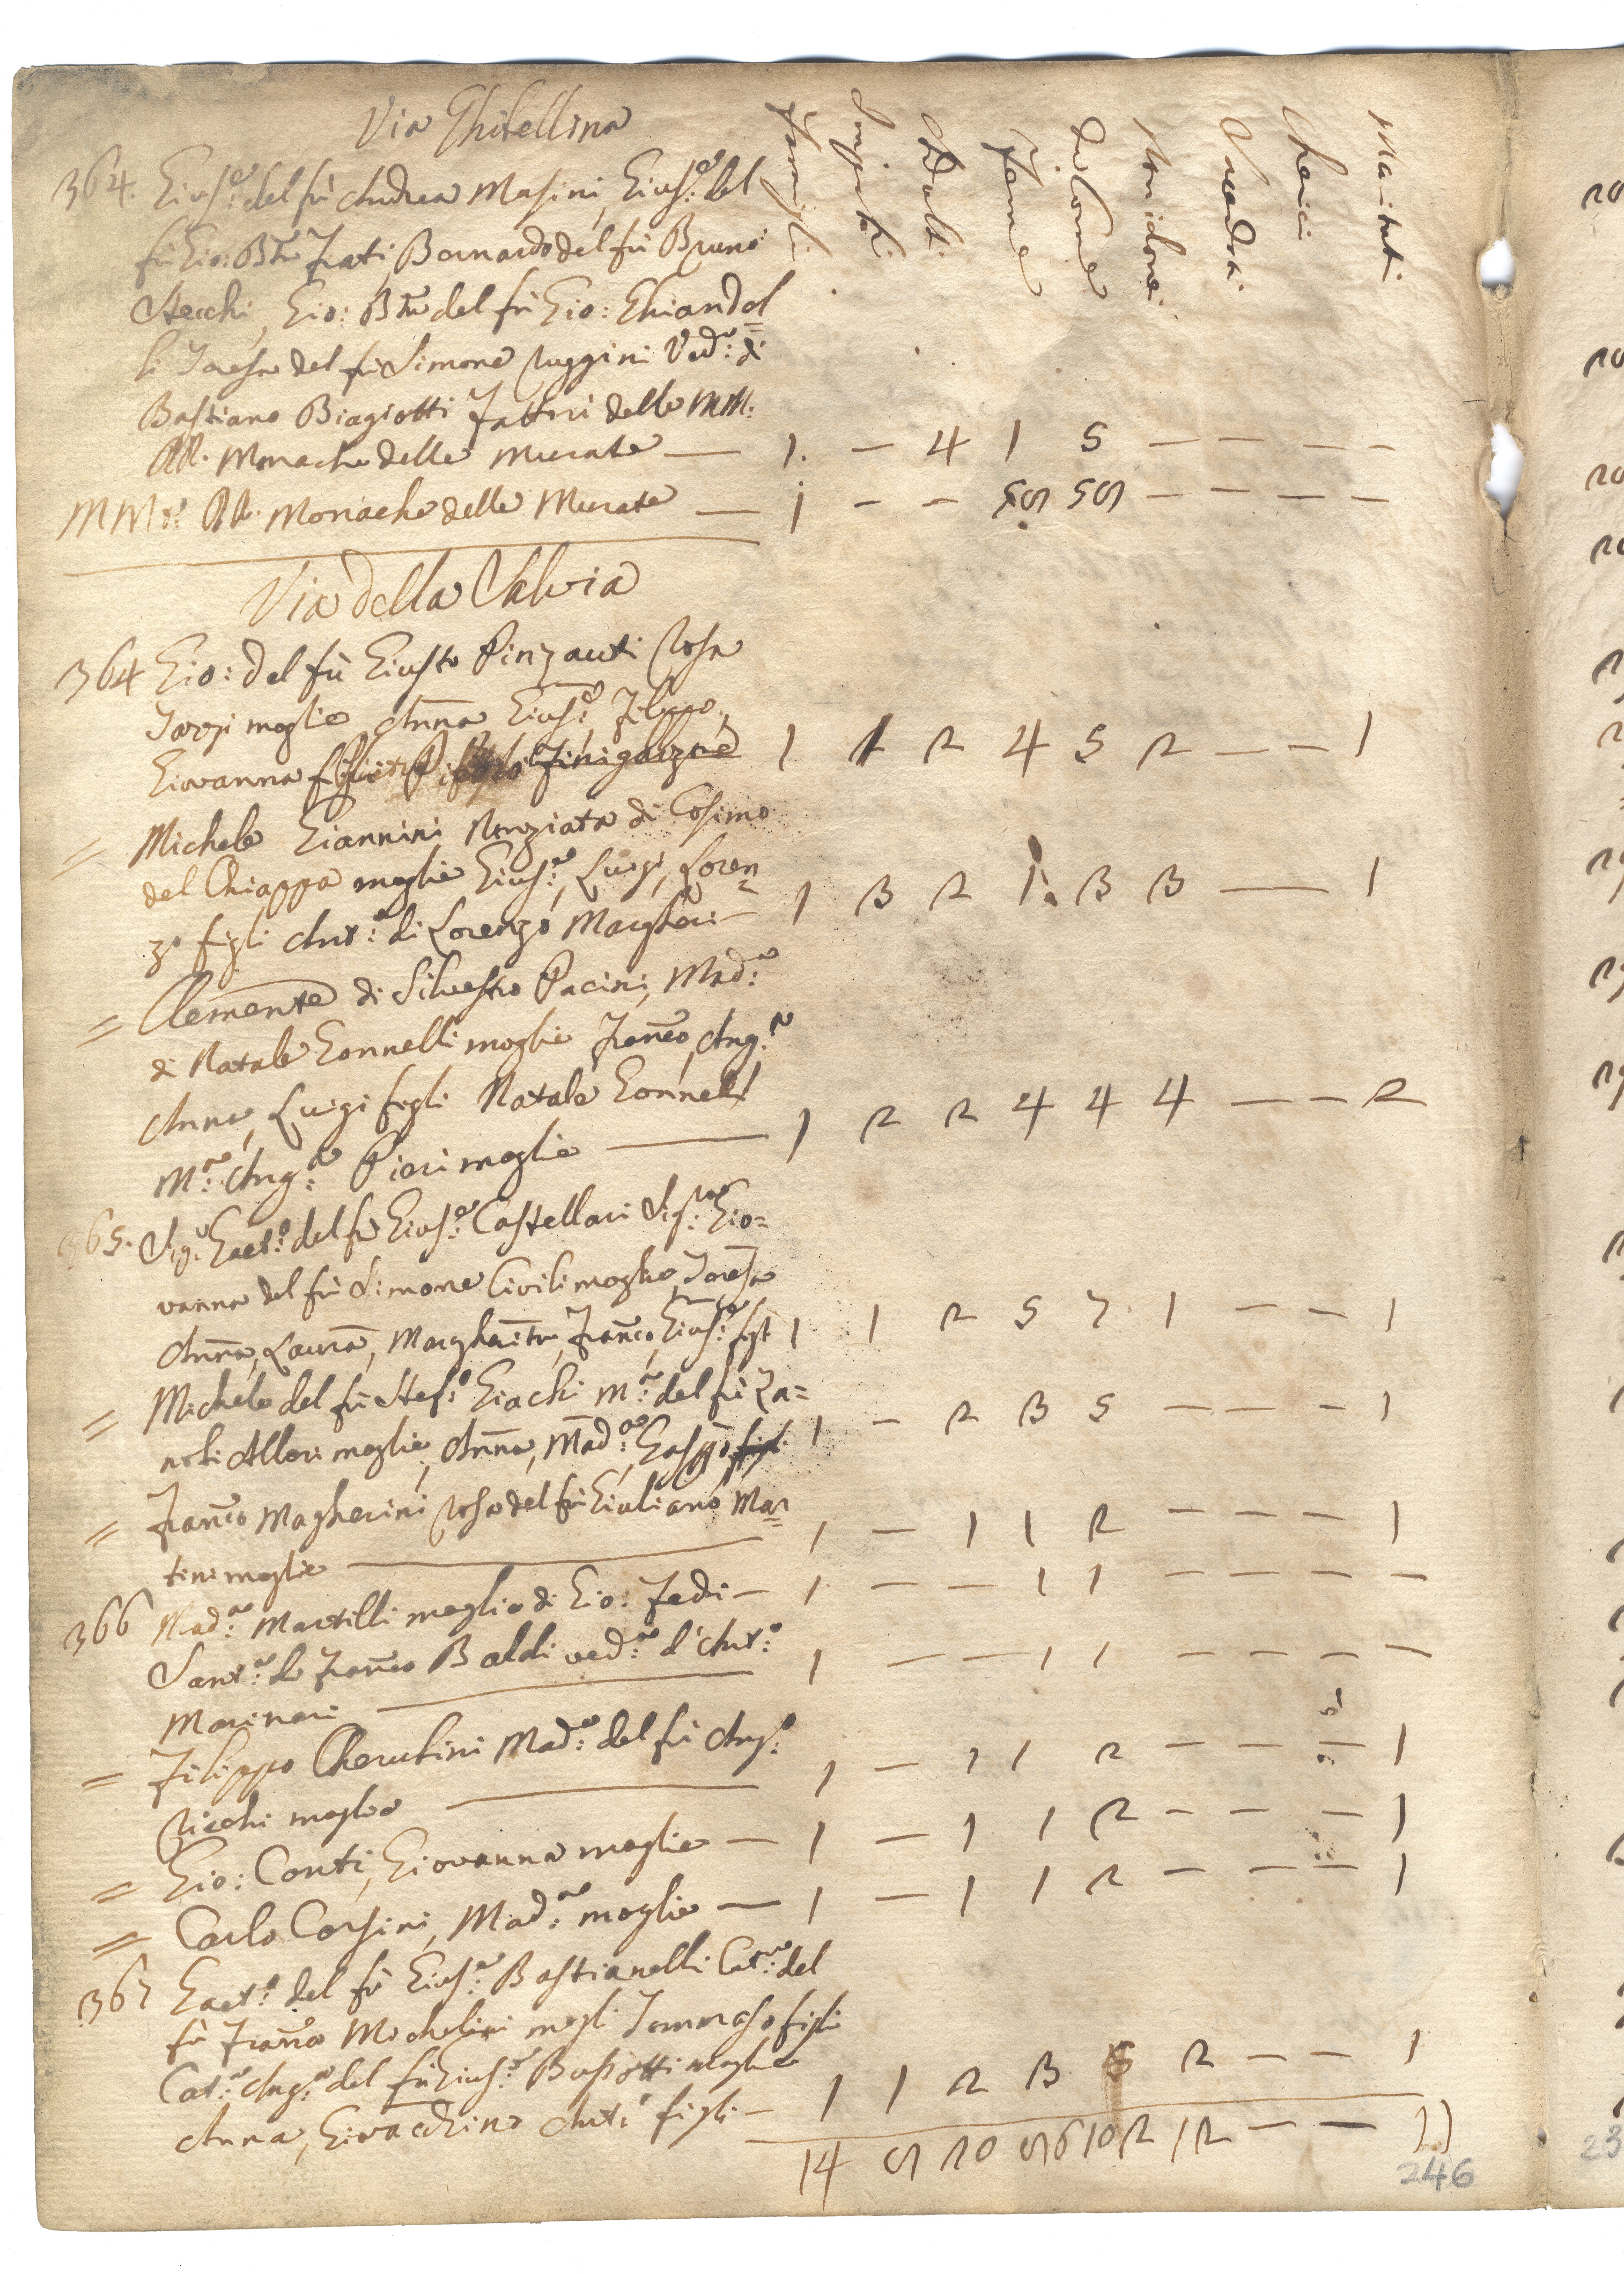 Via Ghibellina
Famigli
Impuberi
Adulti
Femine
Di Comne
Non idonei
Preti
Cherici
Maritati
364. Gius:e del fù Andrea Masini, Gius:e del
fù Gio: Bta Frati, Bernardo del fù Bruno
Stecchi, Gio: Bta del fù Gio: Ghiandel=
li Teresa del fù Simone Ruggini Ved:a di
Bastiano Biagiotti Fattori delle MM:
RR. Monache delle Murate — 1. – 4 1 5 – – – –
MM: RR. Monache delle Murate — 1 – – 59 59 – – – –
Via della Salvia
364 Gio: del fù Giusto Pinzauti Rosa
Tozzi moglie, Anna Gius:e, Filippo,
Giovanna 1 1 2 4 5 2 – – – 1
= Michele Giannini Nunziata di Cosimo
del Chiappa moglie Gius:a, Luigi, Loren=
zo figli Ant:o di Lorenzo Margheri – 1 3 2 1. 3 3 — 1
= Clemente di Silvestro Pacini, Mad:a
di Natale Gonnelli moglie Franco, Ang:a
Anna, Luigi figli Natale Gonnelli
M:a Ang:a Pieri moglie — 1 2 2 4 4 4 – – 2
365. Sig:e Gaet:o del fù Gius:e Castellari Sig:ra Gio=
vanna del fù Simone Civili moglie, Teresa
Anna, Laura, Margherita, Franco, Gius:e figli 1 1 2 5 7 1 – – 1
= Michele del fù Stef:o Giachi M:a del fù Za=
nobi Allori moglie, Anna, Mad:a, Gasp̃o figli 1 – 2 3 5 – – – 1
= Franco Magherini Rosa del fù Giuliano Mar=
tini moglie — 1 – 1 1 2 – – – – 1
366 Mad:a Martilli moglie di Gio: Fedi – 1 – – 1 1 – – – –
Sant:a di Franco Baldi ved:a d'Ant:o
Marinari — 1 – – 1 1 – – – –
= Filippo Cherubini Mad:a del fù Ang:o
Ricchi moglie — 1 – 1 1 2 – – – 1
= Gio: Conti, Giovanna moglie — 1 – 1 1 2 – – – 1
= Carlo Corsini, Mad:a moglie — 1 – 1 1 2 – – – 1
367 Gaet:o del fù Gius:e Bastianelli Cat:a del
fù Franco Michelini mogli Tommaso figli
Cat:a Ang:a del fù Gius:e Bussotti moglie
Anna, Giovacchino Ant:o figli – 1 1 2 3 5 2 – – 1
14 9 20 96 102 12 – – 11
246